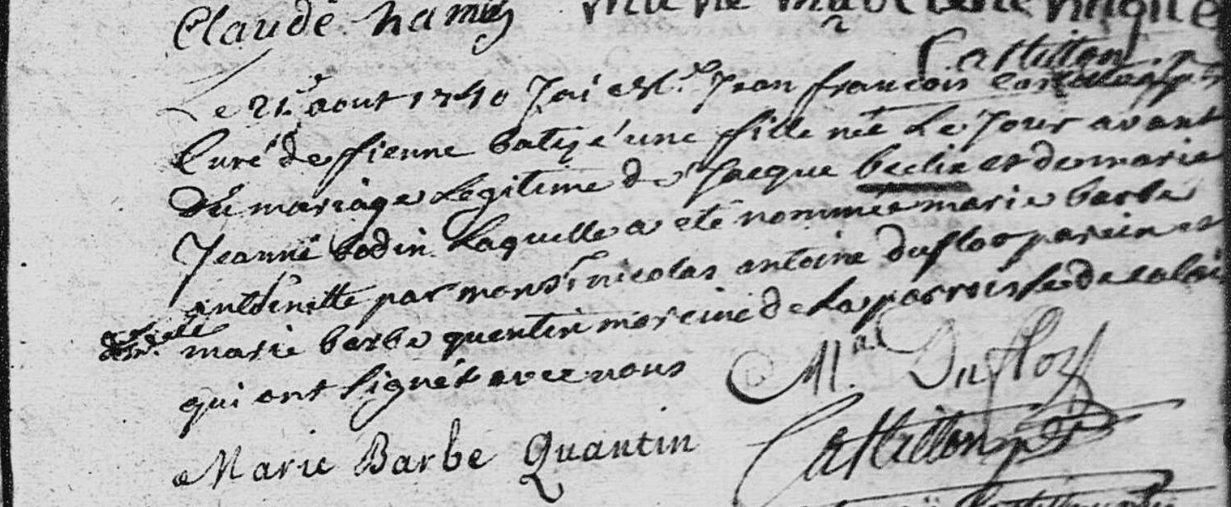 Claude hamy Marie madelene
Castillon
Le 21e aout 1740 Jai Jean francois Castillon
Curé de fienne batizé une fille née Le Jour avant
Du mariage Legitime de Jacque beclin et de marie
Jeanne bodin Laquelle a eté nommée marie barbe
antoinette par monsr nicolas antoine dufloo parein et
marie barbe quentin mareine de La parroisse de calai
qui ont signéz avec nous
Mal. Dufloz
Marie Barbe Quantin
Castillon